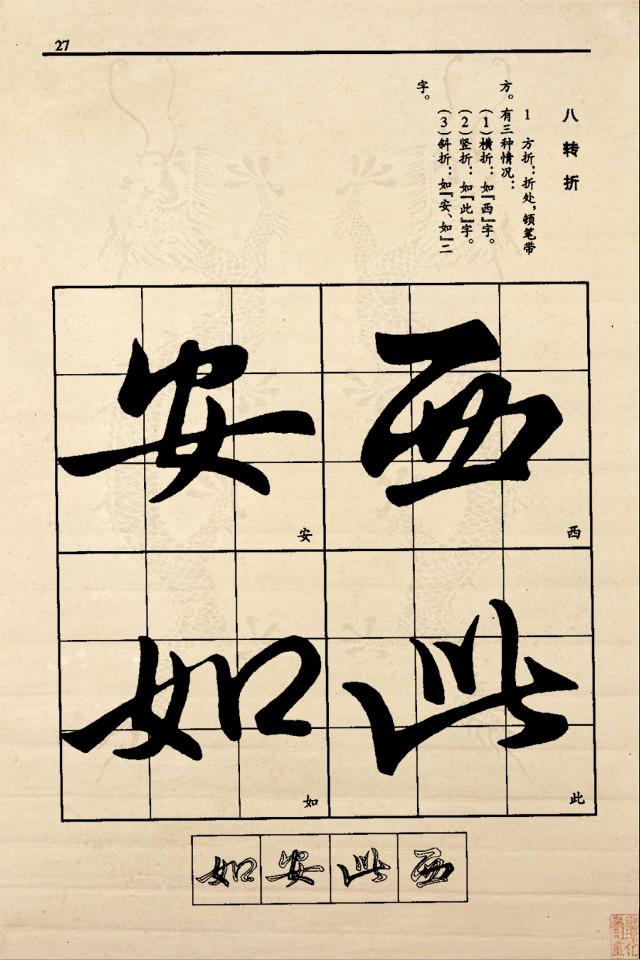 27
八 转 折
1 方折：折处，顿笔带
方。有三种情况：
(1)横折：如『西』字。
(2)竖折：如『此』字。
(3)斜折：如『安、如』二
字。
西
西
此
此
安
安
如
如
西
此
安
如